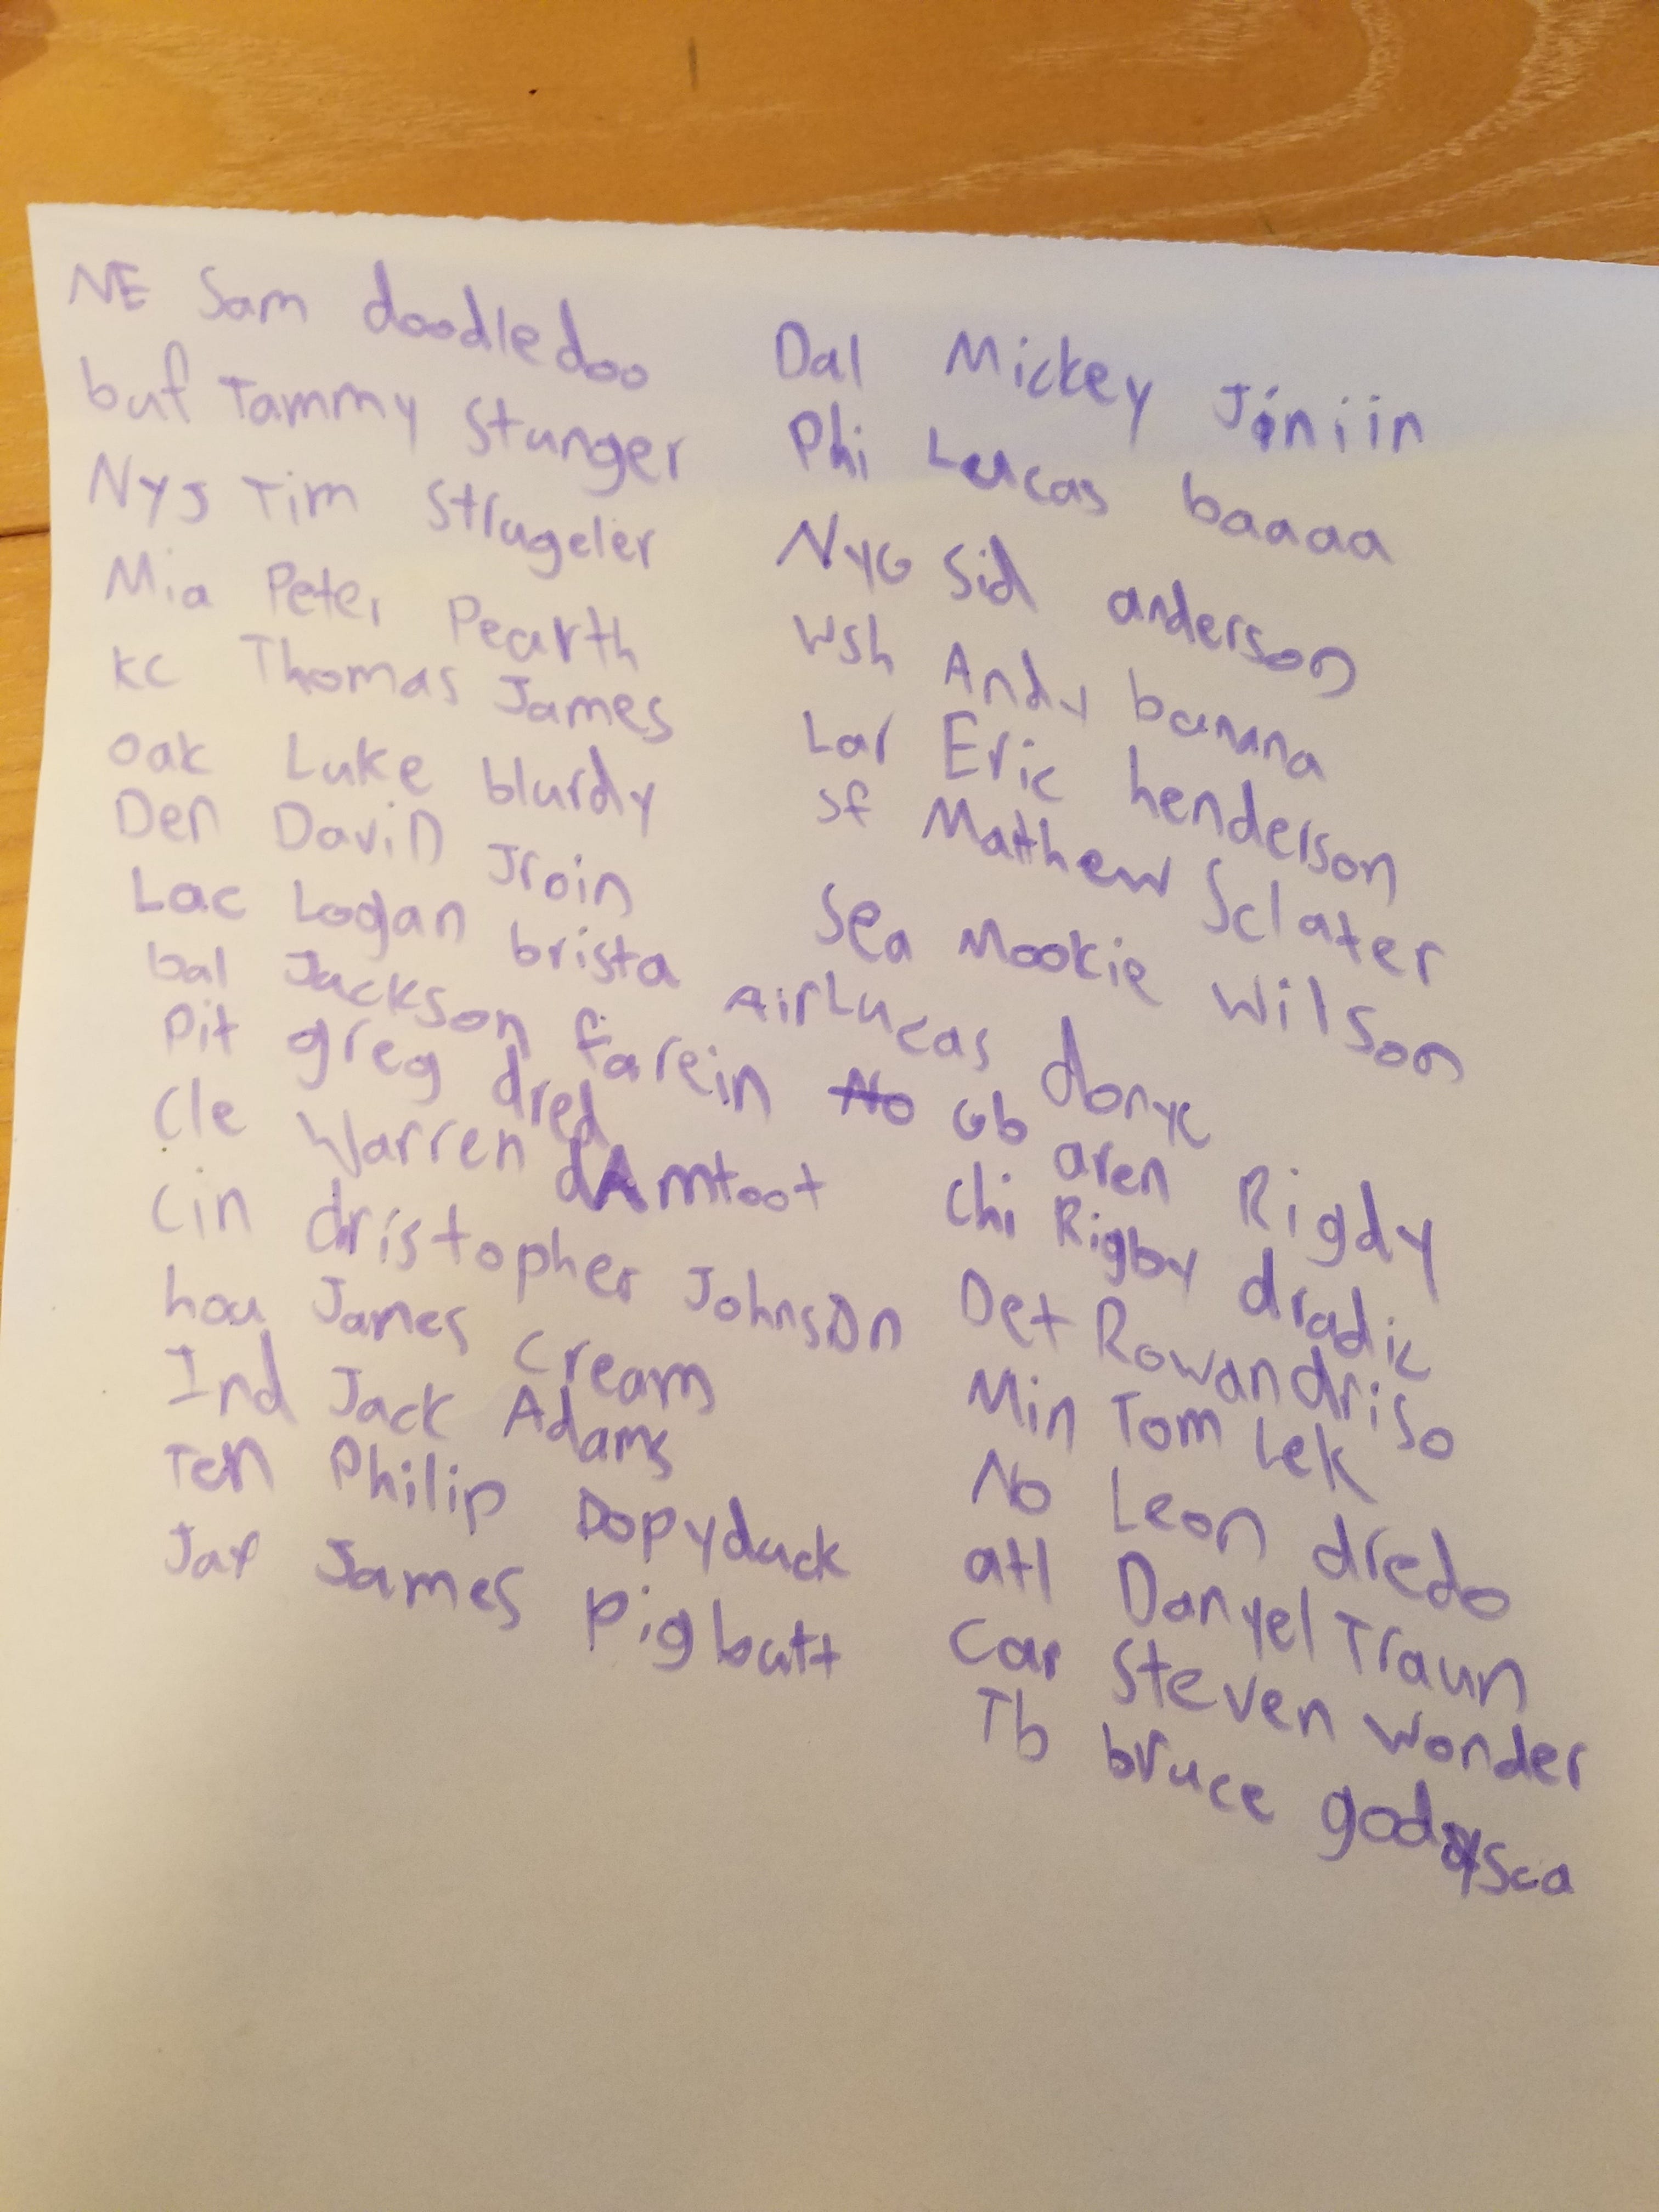 NE Sam doodledoo
buf Tammy Stunger
NyJ Tim Strugeler
Mia Peter Pearth
KC Thomas James
Oak Luke blurdy
Den DaviD Jroin
Lac Logan brista
bal Jackson farein
Pit greg dred
Cle Warren dAmtoot
Cin dristopher JohnsOn
hou James Cream
Ind Jack Adams
Ten Philip Dopyduck
Jax James Pigbutt
Dal Mickey Jóniin
Phi Lucas baaaa
NyG Sid anderson
Wsh Andy banana
Lar Eric henderson
Sf Mathew Sclater
Sea Mookie Wilson
Air Lucas donyc
No Gb aren Rigdy
Chi Rigby dradic
Det Rowan driso
Min Tom Lek
No Leon dredo
atl Danyel Traun
Car Steven Wonder
Tb bruce